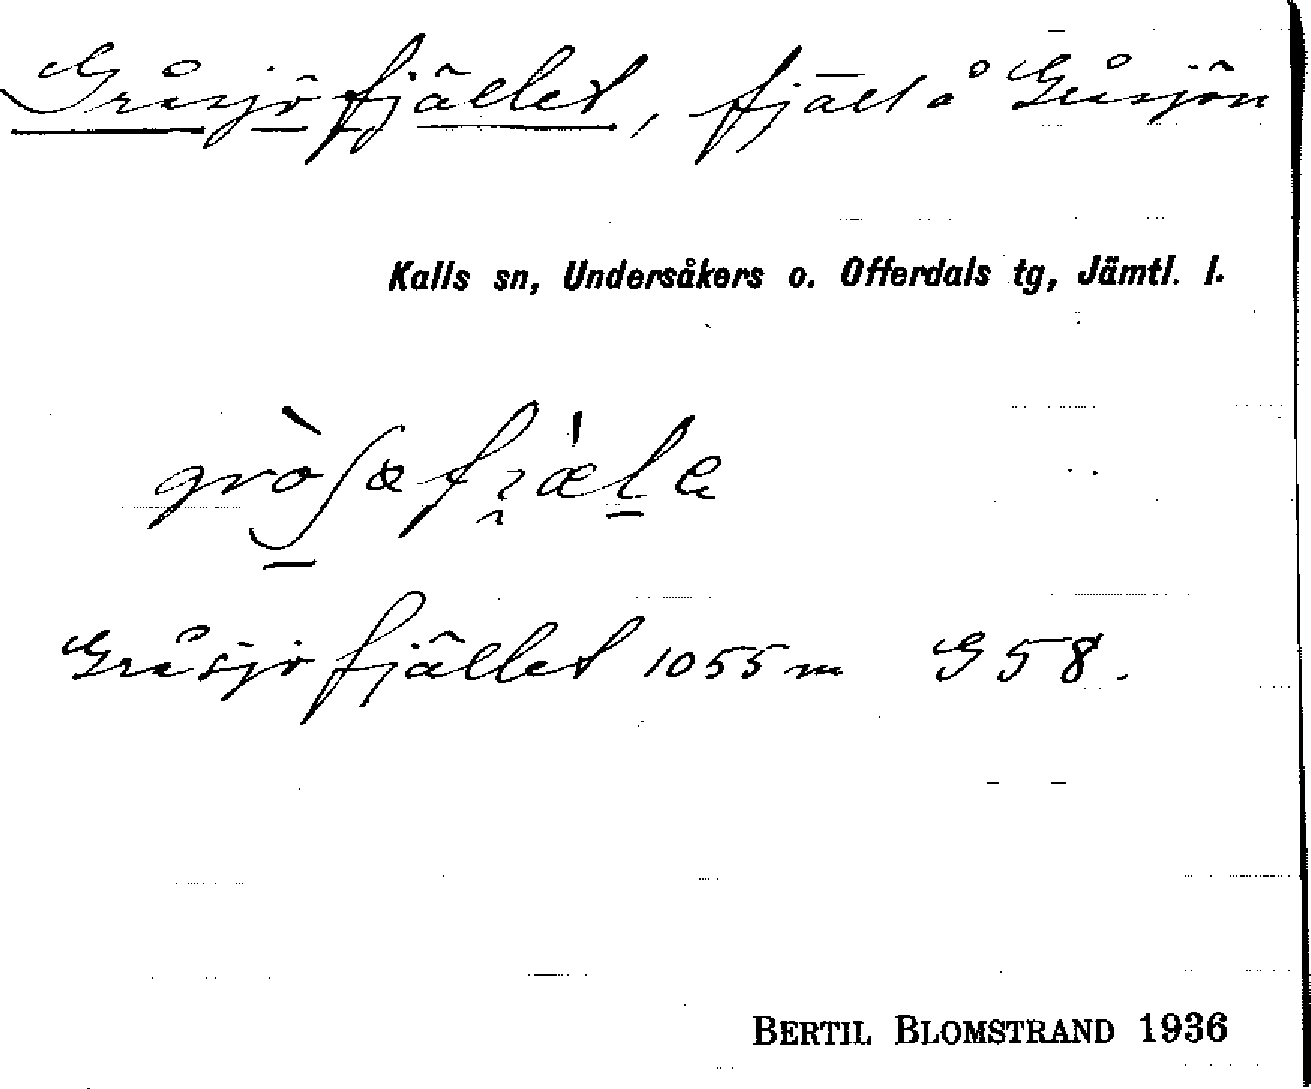 Gråsjöfjället, fjäll å Gåsjön
Kalls sn, Undersåkers o. Offerdals tg, Jämtl. l.
Gråsjöfjället 1055 m G 58.
BERTIL BLOMSTRAND 1936